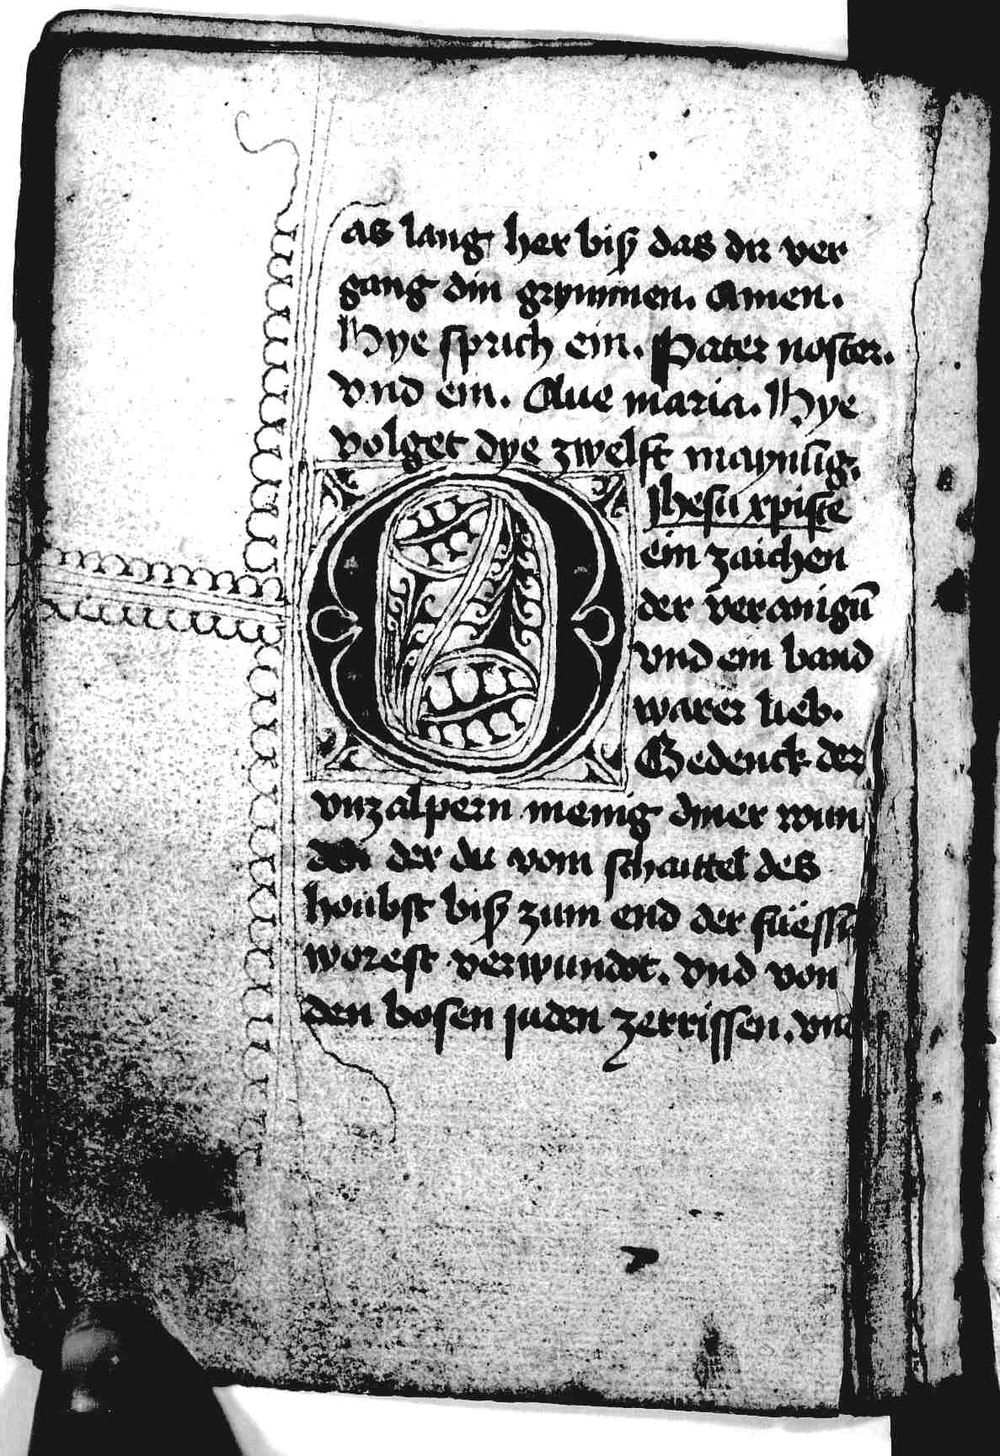 as lang her biß das dir ver
gang din grymmen. Amen.
Hye sprich ein. Pater noster.
vnd ein. Aue maria. Hye
volget dye zwelft maynug.
O Jhesu xpiste
ein zaichen
der veranigu̅
vnd ein band
warer lieb.
Gedenck der
vnzalpern menig diner wun
den der du vom schaittel des
houbst biß zum end der füessn
worest verwundot. vnd von
den bosen juden zerrissen. vnd